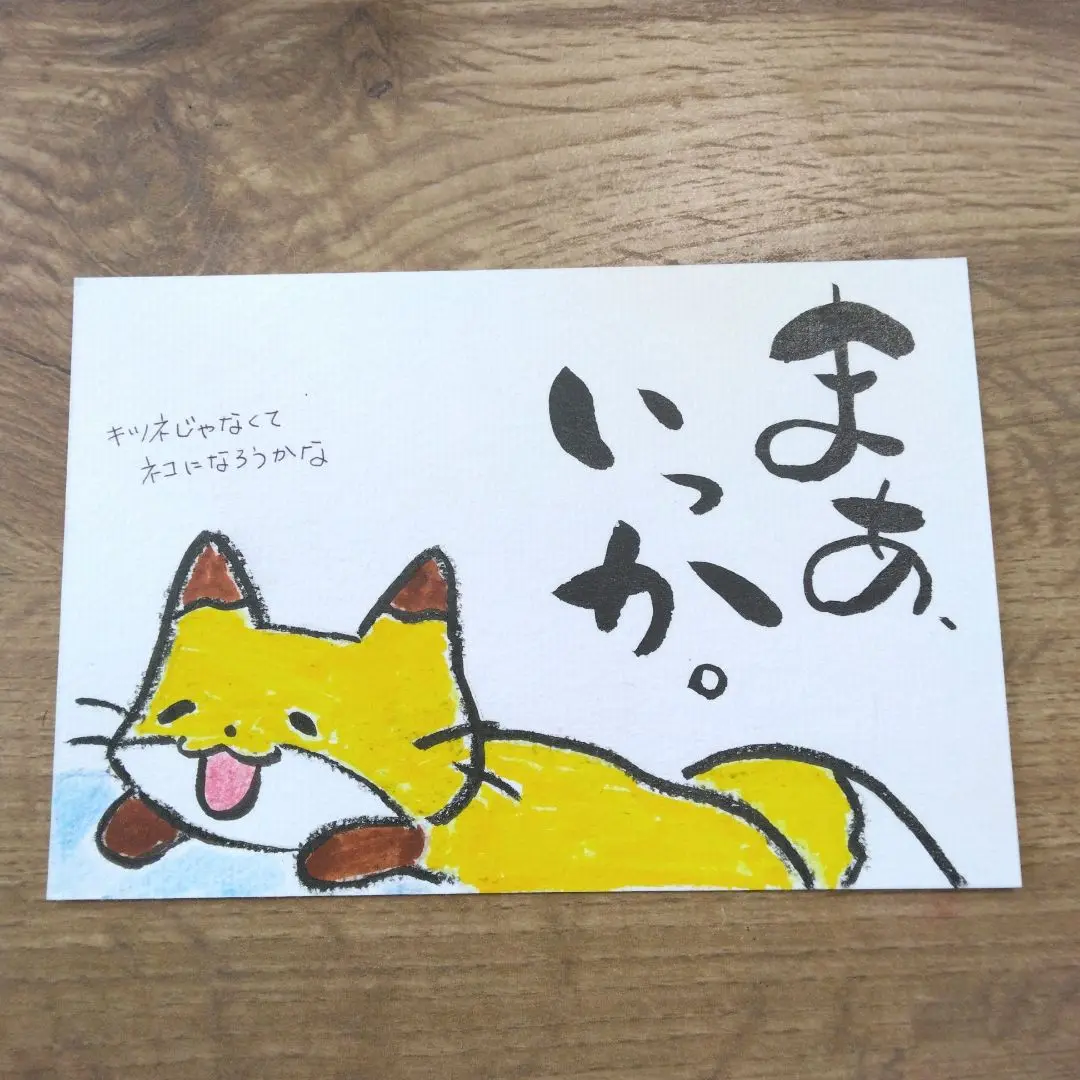 まあ、
いっか。
キツネじゃなくて
ネコになろうかな